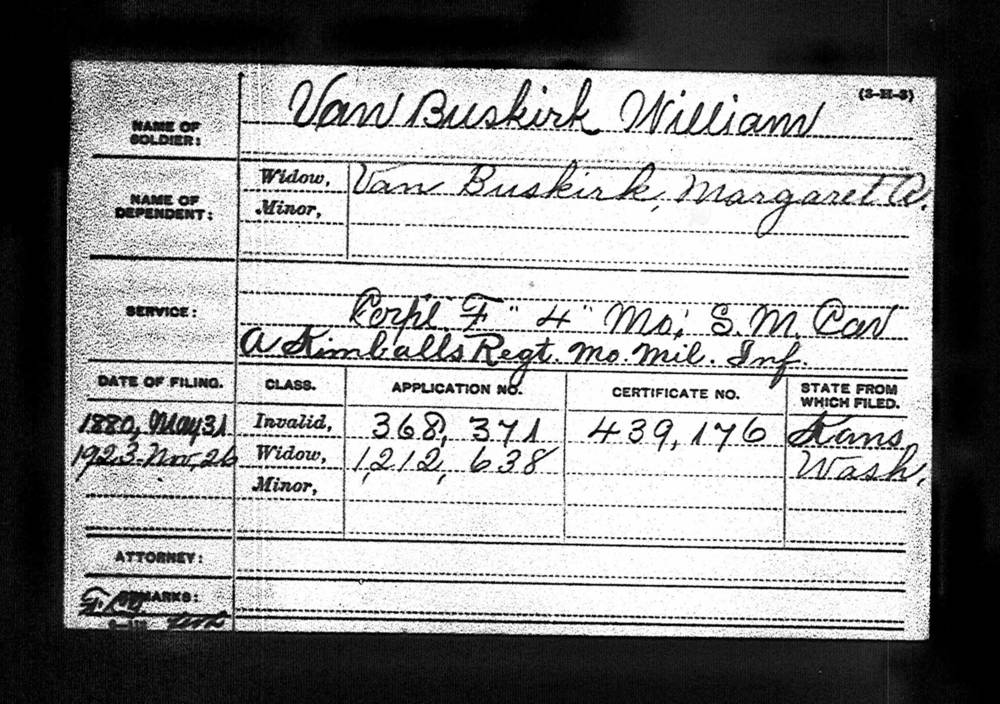 (3-H-3)
NAME OF SOLDIER: Van Buskirk William
NAME OF DEPENDENT: Widow, Van Buskirk, Margaret A.
Minor,
SERVICE: Corp'l F "4" Mo. S. M. Cav
A Kimballs Regt. Mo. Mil. Inf.
DATE OF FILING. CLASS. APPLICATION NO. CERTIFICATE NO. STATE FROM WHICH FILED.
1880, May 31 Invalid, 368,371 439,176 Kans
1923 Nov. 26 Widow, 1,212,638 Wash.
Minor,
ATTORNEY:
REMARKS: